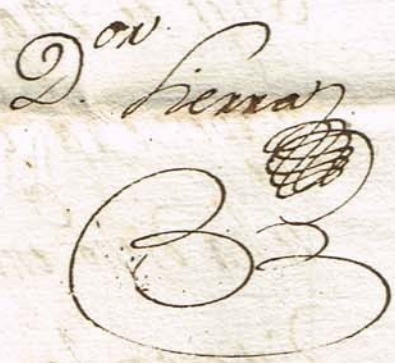 D.or Sierra